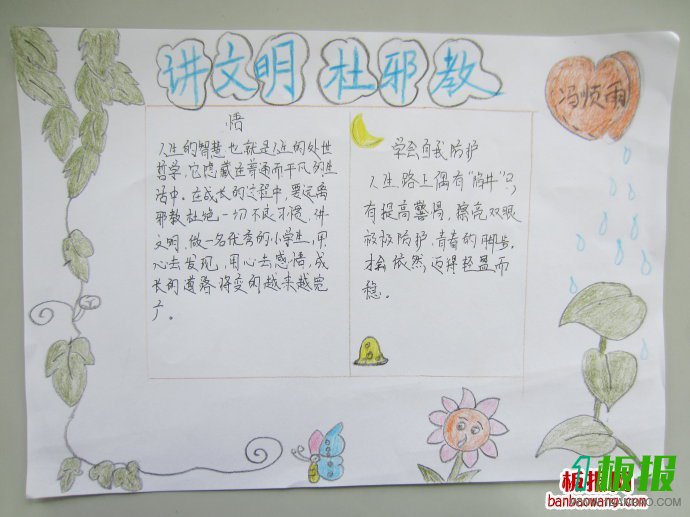 讲文明 杜邪教
冯烦雨
悟
人生的智慧也就是人生的处世
哲学,它隐藏在普通而平凡的生
活中。在成长的过程中,要远离
邪教杜绝一切不良习惯,讲
文明,做一名优秀的小学生,用
心去发现,用心去感悟,成
长的道路将变的越来越宽
广。
学会自我防护
人生路上偶有"陷井",
有提高警惕,擦亮双眼
放放防护,青春的脚步,
才会依然,迈得轻盈而
稳。
板报网
banbaowang.com
板报